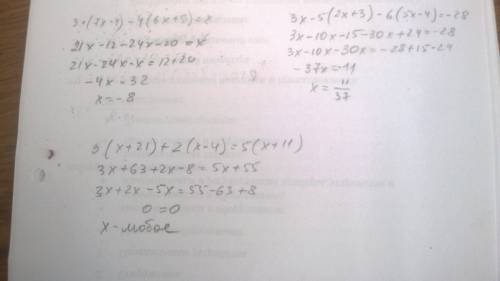 3·(7x-4)-4(6x+5)=x
21x-12-24x-20=x
21x-24x-x=12+20
-4x=32
x=-8
3x-5(2x+3)-6(5x-4)=-28
3x-10x-15-30x+24=-28
3x-10x-30x=-28+15-24
-37x=-11
x=11/37
3(x+21)+2(x-4)=5(x+11)
3x+63+2x-8=5x+55
3x+2x-5x=55-63+8
0=0
x-любое